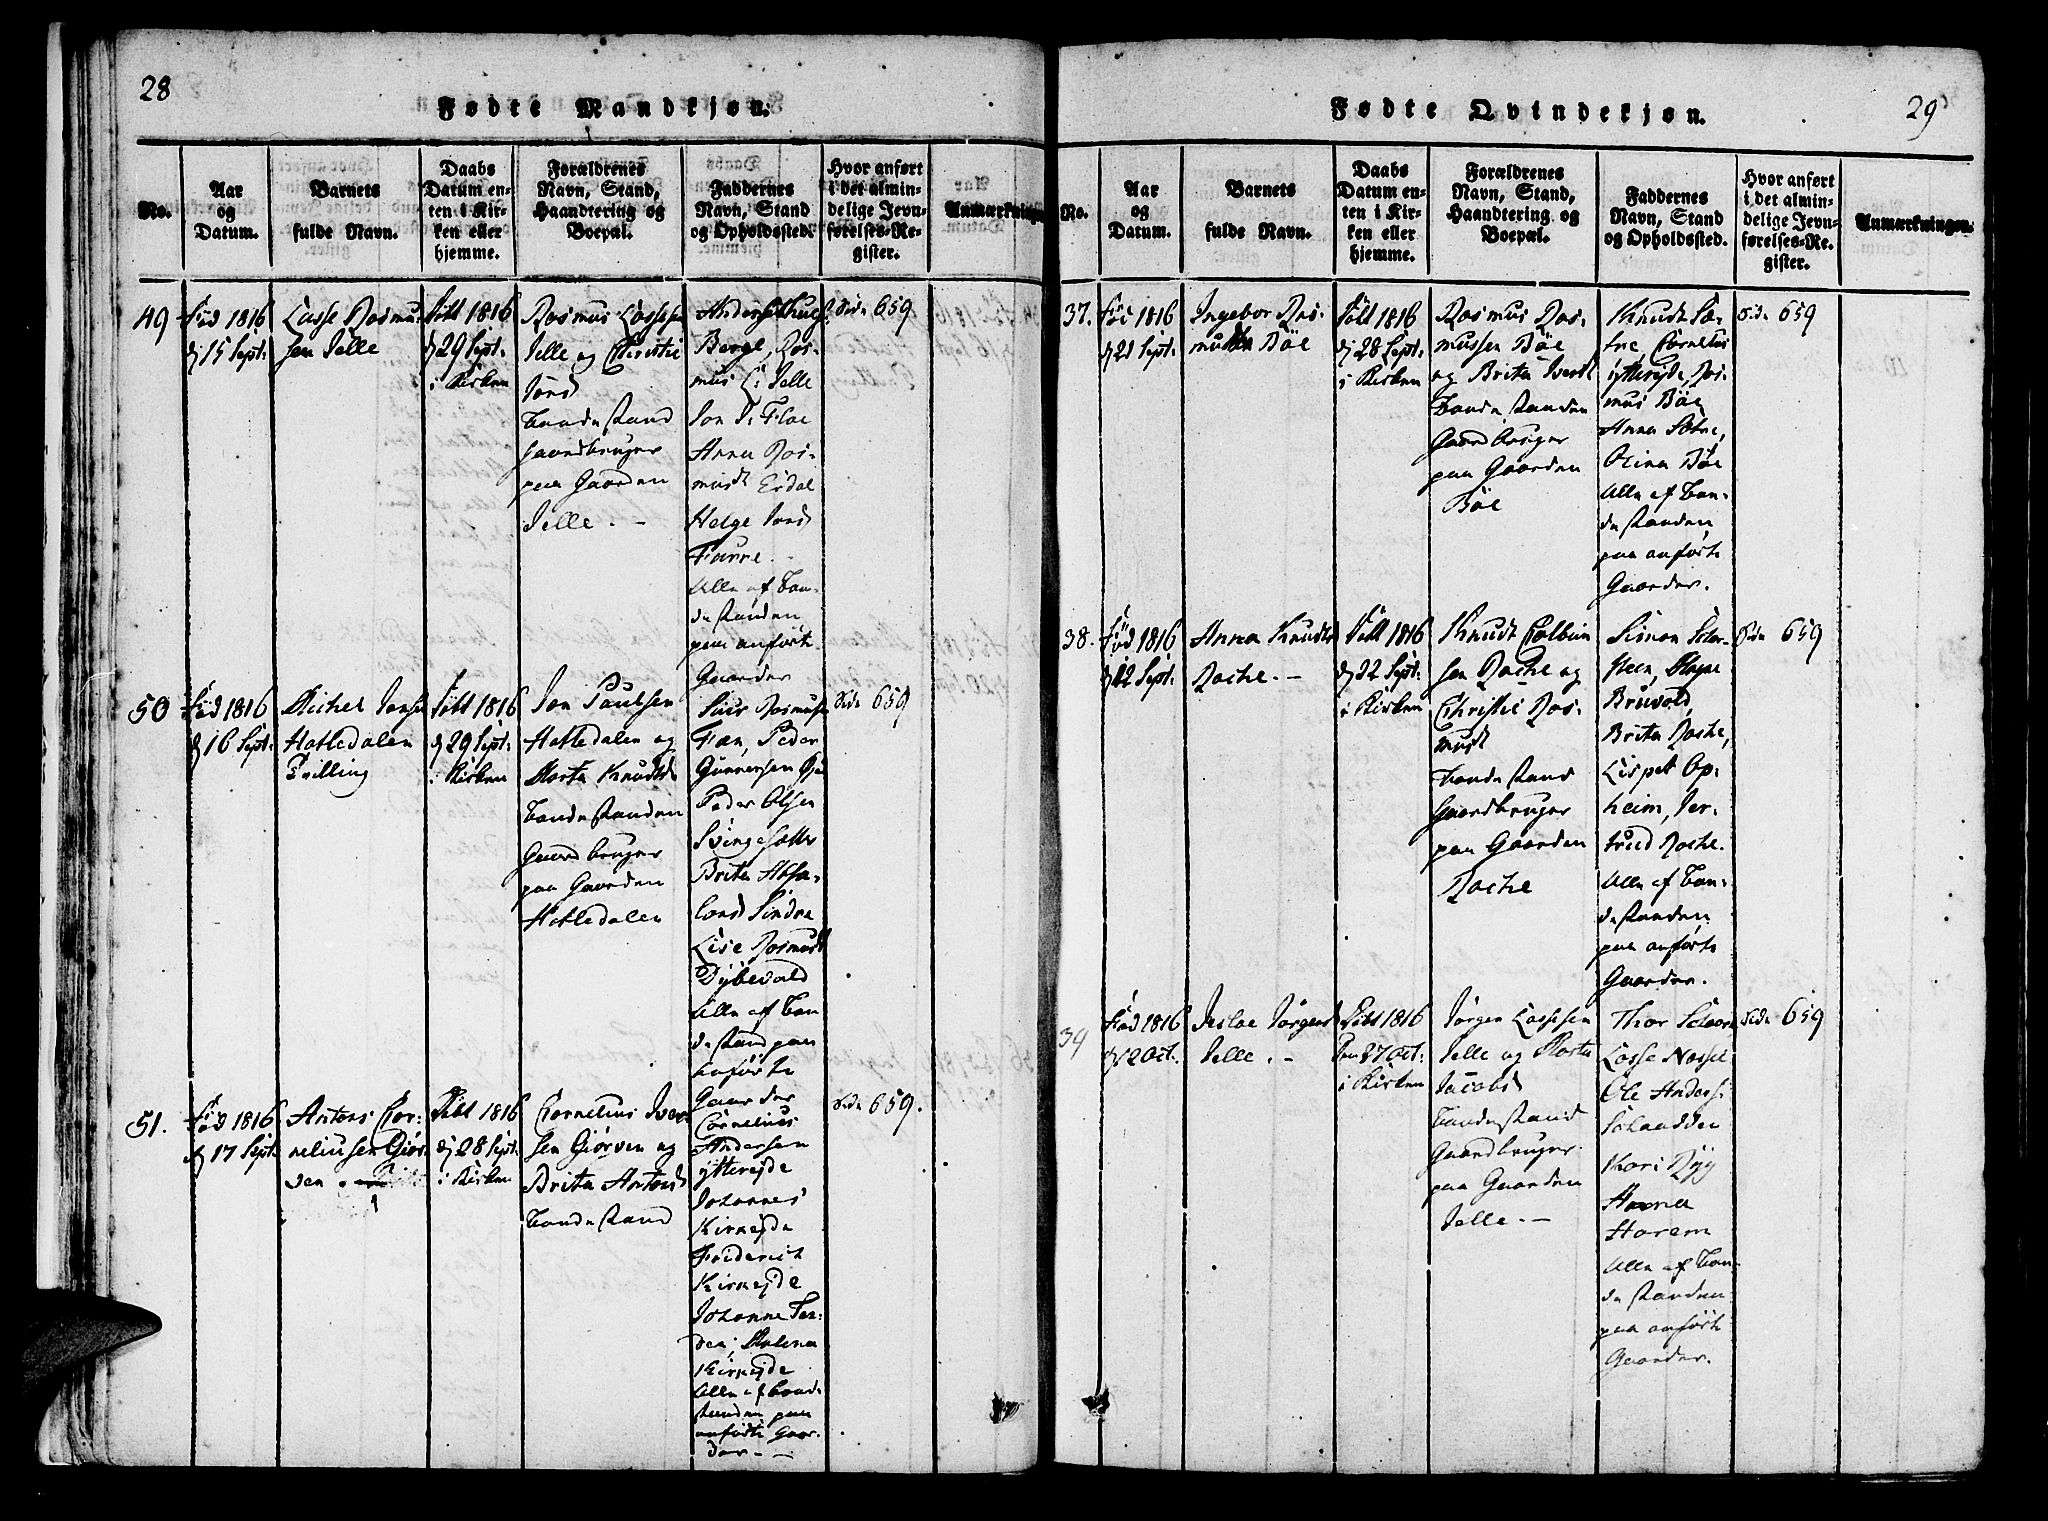 28
Fødte Mandkjøn.
No.
Aar
og
Datum.
Barnets
fulde Navn.
Daabs
Datum en-
ten i Kir-
ken eller
hjemme.
Forældrenes
Navn, Stand,
Haandtering og
Boepæl.
Faddernes
Navn, Stand
og Opholdssted.
Hvor anført
i det almin-
delige Jevn-
førelses-Re-
gister.
Anmærkninge
49
Fød 1816
d 15 Sept:
Lasse Rasmu-
sen Jelle
Døbt 1816
d 29 Sept:
i Kirken
Rasmus Lassesen
Jelle og Christie
Jonsd
Bondestand
Gaardbruger
paa Gaarden
Jelle. -
Berge, Ras-
mus L: Jelle
Jon J: Floe
Anna Ras-
musd Eidal
Helge Jonsd
Farre.
Alle af Bon-
destanden
paa anførte
Gaarder
Side 659
50
Fød 1816
d 16 Sept:
Michel Jonsen
Hatledalen
Tvilling
Døbt 1816
d 29 Sept:
i Kirken
Jon Paulsen
Hatledalen og
Marta Knudsd
Bondestanden
Gaardbruger
paa Gaarden
Hatledalen
Siur Rasmusen
Fæn, Peder
Gunnersen
Peder Olsen
Svingesætter
Brita Absa-
lonsd Sindre
Lise Rasmusd
Dybevald
Alle af Bon-
destand paa
anførte
Gaarder
Side 659
51.
Fød 1816
d 17 Sept:
Antons Cor-
neliusen Giør-
ven
Døbt 1816
d 28 Sept:
i Kirken
Cornelius Iver-
sen Giørven og
Brita Antonsd
Bondestand
Cornelius
Andersen
ytterejde
Johannes
Kirkejde
Friderich
Kirkejde
Johanne Ter-
den, Malena
Kirkejde
Alle af Bond-
standen paa
anførte Gaar-
der - -
Side 659.
29
Fødte Qvindekjøn.
No.
Aar
og
Datum.
Barnets
fulde Navn.
Daabs
Datum en-
ten i Kir-
ken eller
hjemme.
Forældrenes
Navn, Stand,
Haandtering og
Boepæl.
Faddernes
Navn, Stand
og Opholdssted.
Hvor anført
i det almin-
delige Jevn-
førelses-Re-
gister.
Anmærkninger.
37.
Fød 1816
d 21 Sept:
Ingebor Ras-
musd Bøe
Døbt 1816
d 28 Sept:
i Kirken
Rasmus Ras-
mussen Bøe
og Brita Iversd
Bondestanden
Gaardbruger
paa Gaarden
Bøe
Knudt Sæ-
tre, Cornelius
ytterejde, Ras-
mus Bøe,
Anna Sætre,
Olina Bøe
Alle af Bon-
destanden
paa anførte
Gaarder.
Side 659
38.
Fød 1816
d 22 Sept.
Anna Knudsd
Rache. -
Døbt 1816
d 22 Sept.
i Kirken
Knudt Colbein
sen Rache og
Christie Ras-
musd
Bondestand
Gaardbruger
paa Gaarden
Rache
Simon
Bruvold,
Brita Rache,
Lispet Op-
heim, Jer-
trud Rache.
Alle af Bon-
destanden
paa anførte
Gaarder.
Side 659
39
Fød 1816
d 2 Oct.
Jørgensd
Jelle. -
Døbt 1816
Den 27 Oct:
i Kirken
Jørgen Lassesen
Jelle og Marta
Jacobsd
Bondestand
Gaardbruger
paa Gaarden
Jelle. -
Thor
Lasse Nosse
Ole Anders:
Schaadden
Kari Ryg
Hanna
Harem
Alle af Bon-
destanden
paa anførte
Gaarder.
Side 659